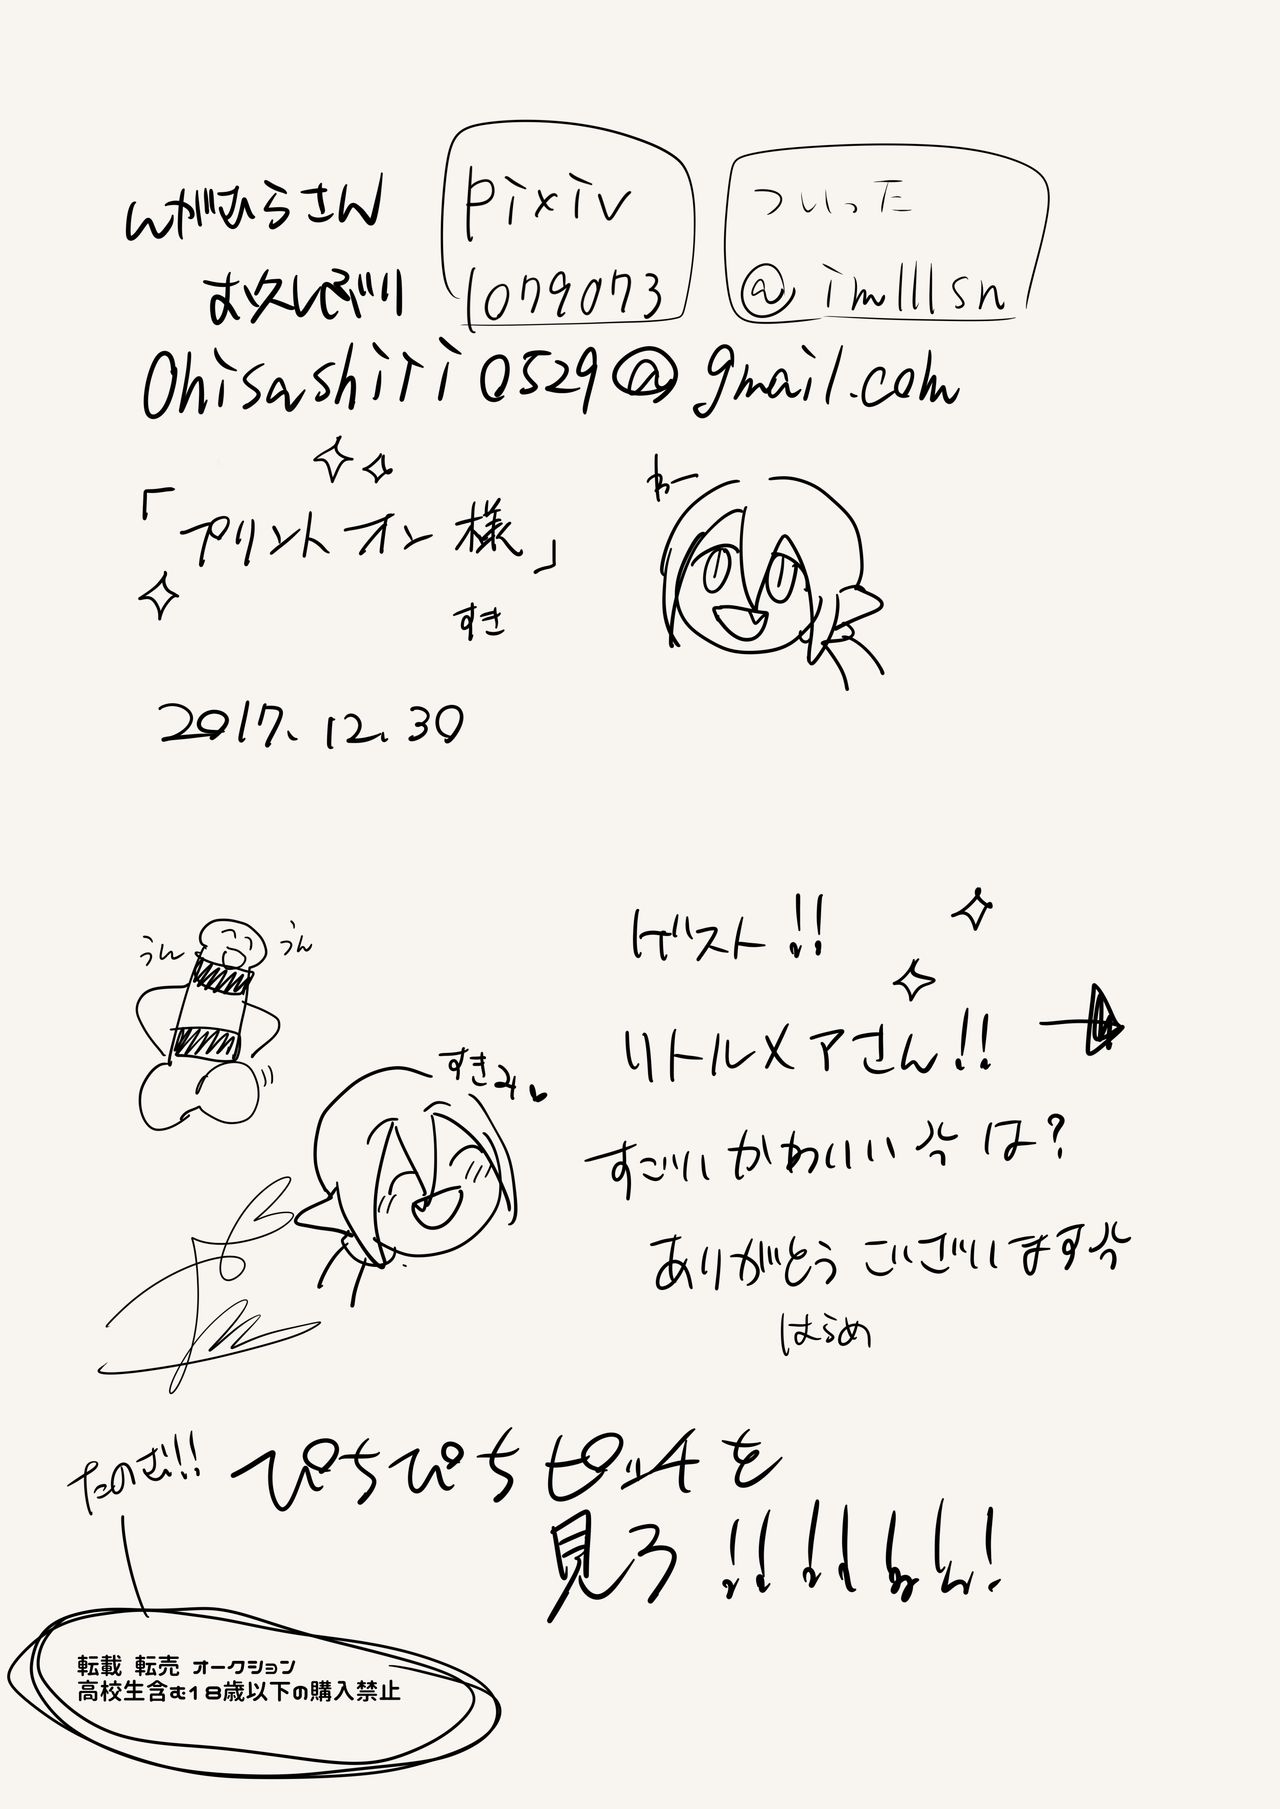 んがひらさん
お久しぶり
pixiv
1079073
ついった
@imlllsn
Ohisashiri0529@gmail.com
「プリントオン様」
すき
わー
2017.12.30
ゲスト!!
リトルメアさん!!
すごいかわいい は?
ありがとうございます
はらめ
うん
うん
すきみ
たのむ!!
ぴちぴちピッチを
見ろ!!!!!!!
転載 転売 オークション
高校生含む18歳以下の購入禁止